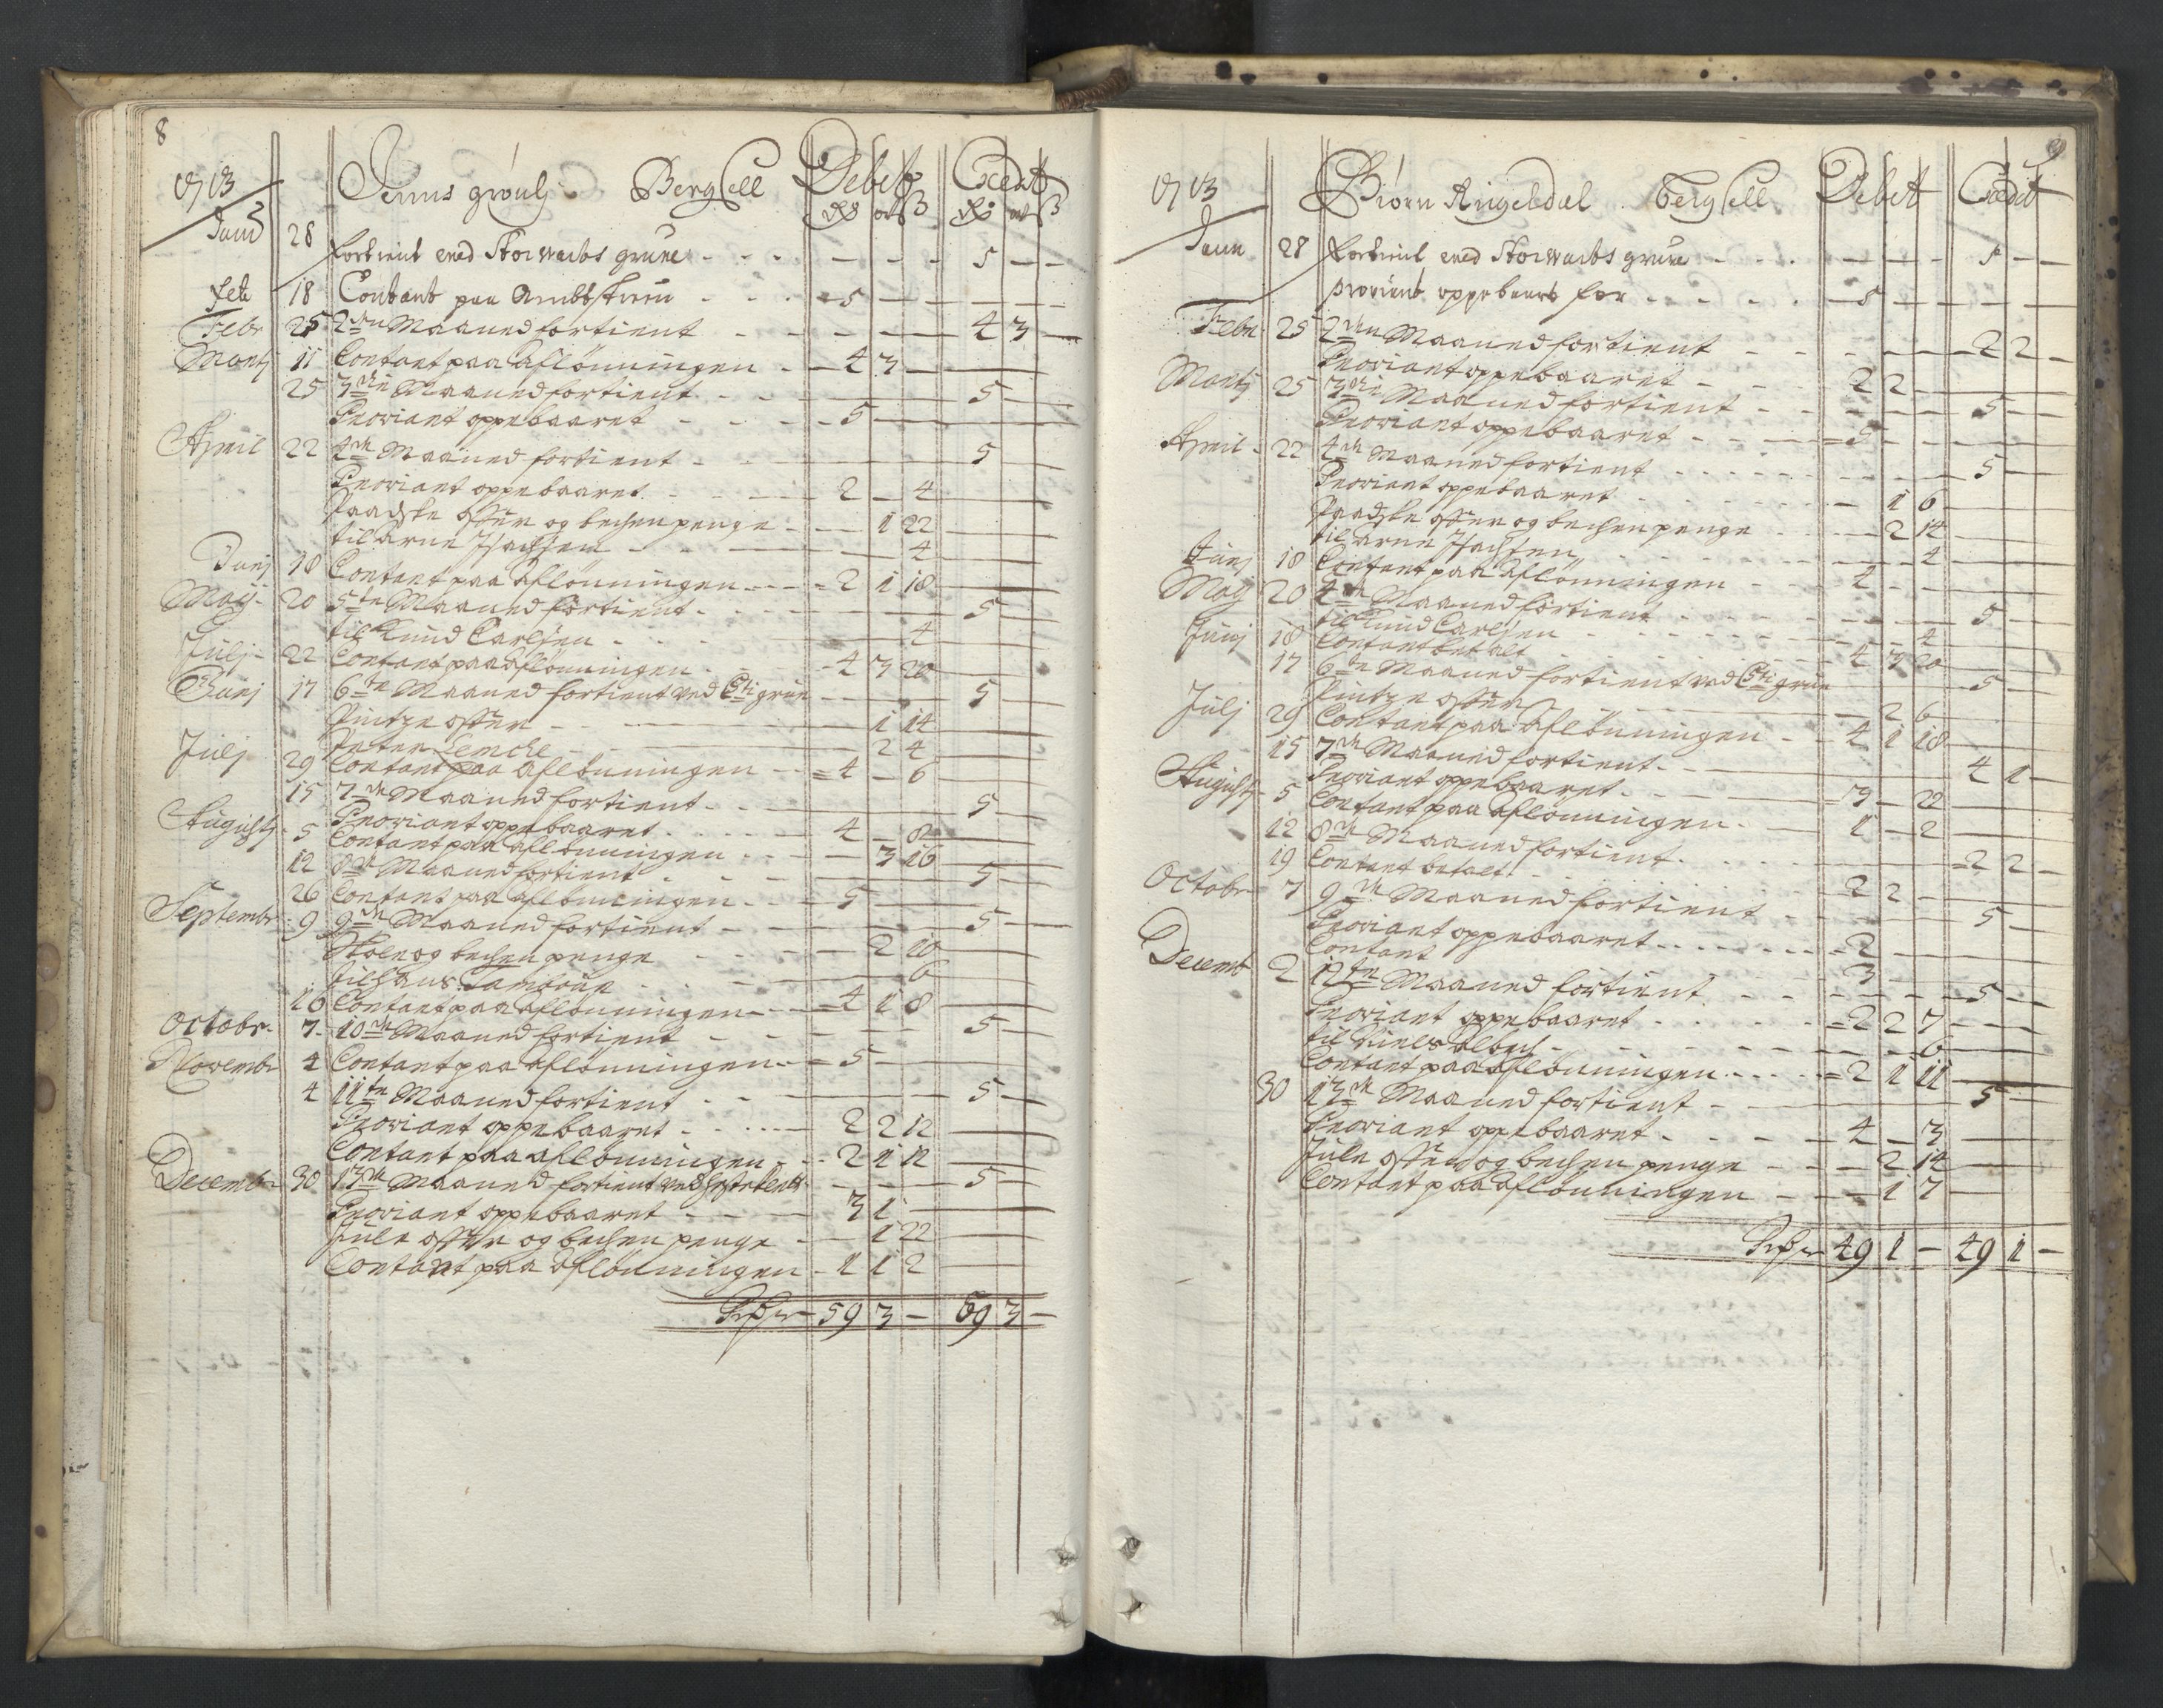 8
1713 Jenus grøulj Bergsell Debet Credit
Janu 28 fortient med Storwarbs grune - - - 5 - -
feb 18 Contant paa Ambtstuen - 5 - -
Febr 25 2den Maaned fortient - - - 4 3 -
Martj 11 Contant paa aflønningen - 4 3 -
25 3die Maaned fortient - - 5 -
Proviant oppebaaret - 5 - -
April 22 4de Maaned fortient - - 5 -
Proviant oppebaaret - 2 - 4
Paadske offer og bechen penge - - 1 22
til Arne Isachsen - - 4
Junj 10 Contant paa aflønningen - 2 1 18
Maij 20 5te Maaned fortient - - 5 -
til Knud Carlsen - - 4
Julj 22 Contant paa aflønningen - 4 3 20
Junj 17 6te Maaned fortient ved Cti grue - - 5 -
Pintze offer - - 1 14
Peter Lemche - 2 4
Julj 29 Contant paa aflønningen - 4 - 6
15 7de Maaned fortient - - 5 -
Proviant oppebaaret - 4 - 8
Augustj 5 Contant paa aflønningen - - 3 16
12 8de Maaned fortient - - 5 -
26 Contant paa aflønningen - 5 - -
Septembr 9 9de Maaned fortient - - 5 -
Skole og bechen penge - - 2 10
til Hans Tambour - - 6
16 Contant paa aflønningen - 4 1 8
Octobr 7 10de Maaned fortient - - 5 -
Novembr 4 Contant paa aflønningen - 5 - -
4 11te Maaned fortient - - 5 -
Proviant oppebaaret - 2 2 12
Contant paa aflønningen - 2 1 12
Decembr 30 13de Maaned fortient ved - - 5 -
Proviant oppebaaret - 3 1 -
Jule offer og bechen penge - - 1 22
Contant paa aflønningen - 1 1 2
59 3 - 59 3 -
9
1713 Biørn Ringeldal Bergsell Debet Credit
Janu 28 fortient med Storwarbs grune - - - 5 - -
proviant oppebaaret for - - 5 - -
Febr 25 2den Maaned fortient - - 2 2 -
Proviant oppebaaret - 2 2 -
Martj 25 3die Maaned fortient - - 5 -
Proviant oppebaaret - 5 - -
April 22 4de Maaned fortient - - 5 -
Proviant oppebaaret - - 1 6
Paadske offer og bechen penge - - 2 14
til Arne Isachsen - - 4
Junj 10 Contant paa aflønningen - 4 - -
Maij 20 4de Maaned fortient - - 5 -
til Knud Carlsen - - 4
Junj 10 Contant betalt - 4 3 20
17 6te Maaned fortient ved Cti grue - 5 -
Pintze offer - - 2 6
Julj 29 Contant paa aflønningen - 4 1 18
15 7de Maaned fortient - - 4 1 -
Proviant oppebaaret - 3 - 22
Augustj 5 Contant paa aflønningen - 1 - 2
12 8de Maaned fortient - - 2 2 -
19 Contant betalt - 2 2 -
Octobr 7 9de Maaned fortient - - 5 -
Proviant oppebaaret - 2 - -
Contant 3 - -
Decemb 2 12te Maaned fortient - - 5 -
Proviant oppebaaret - 2 2 7
til Niels - - 6
Contant paa aflønningen - 2 1 11
30 13de Maaned fortient - - 5 -
Proviant oppebaaret - 4 - 3
Jule offer og bechen penge - - 2 14
Contant paa aflønningen - - 1 7
49 1 - 49 1 -